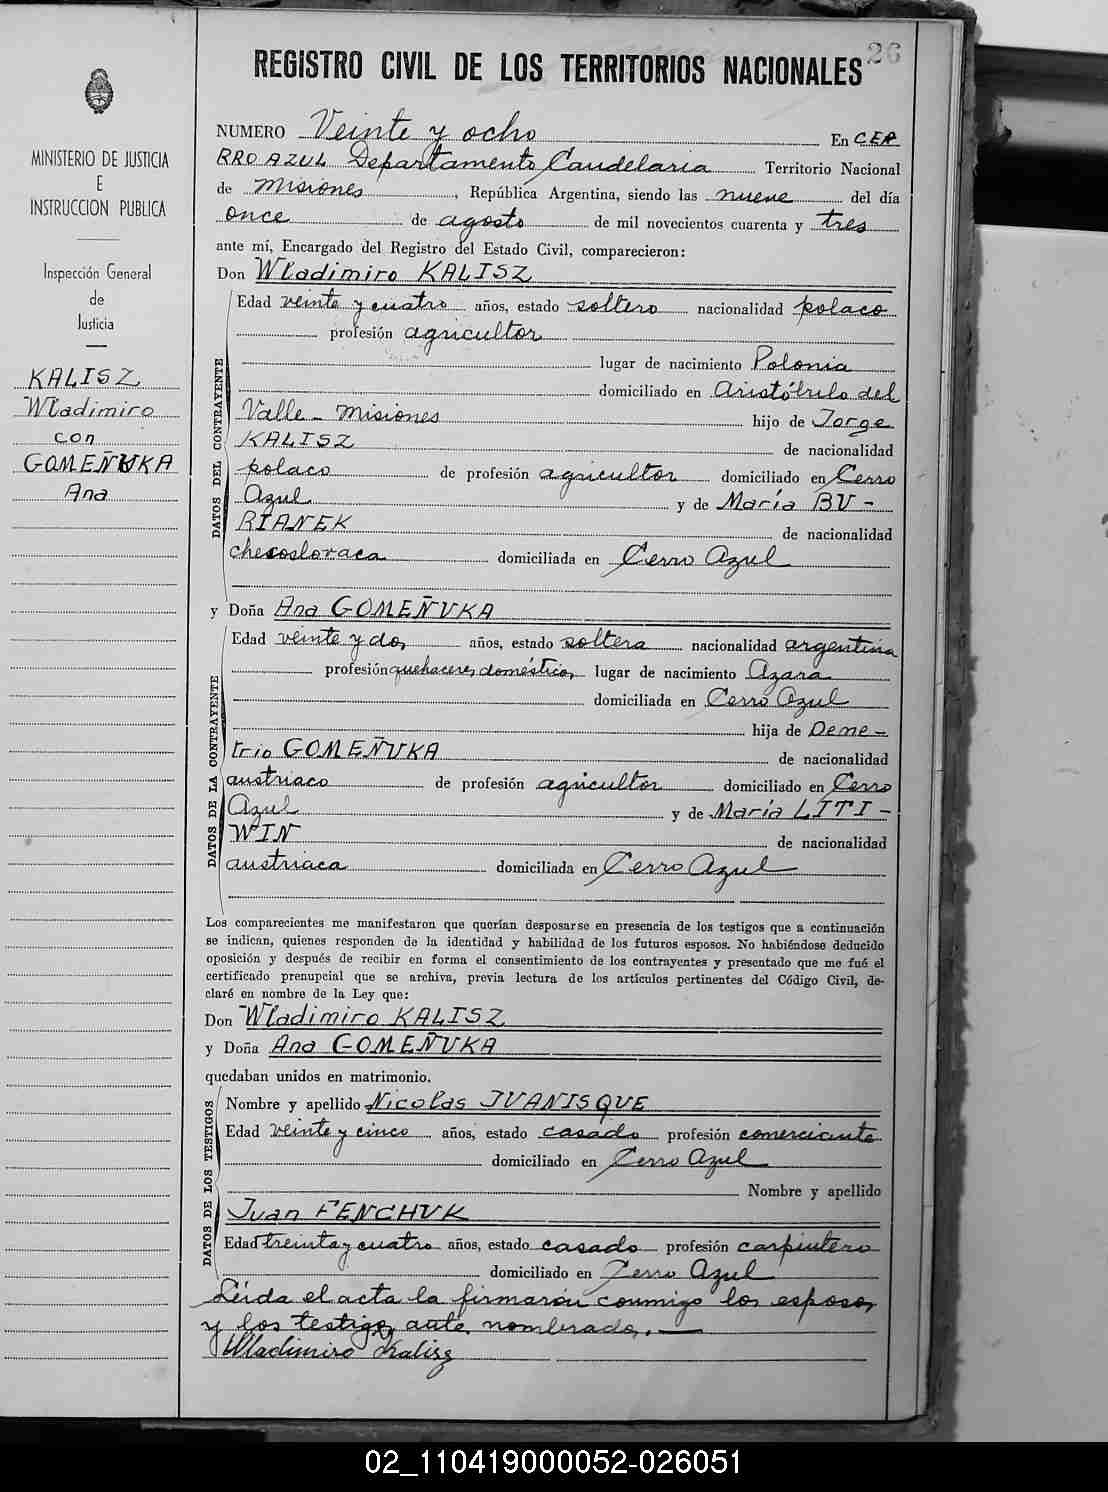 26
REGISTRO CIVIL DE LOS TERRITORIOS NACIONALES
MINISTERIO DE JUSTICIA
E
INSTRUCCION PUBLICA
Inspección General
de
Justicia
KALISZ
Wladimiro
con
GOMEÑUKA
Ana
NUMERO Veinte y ocho En CER
RRO AZUL Departamento Candelaria Territorio Nacional
de Misiones, República Argentina, siendo las nueve del día
once de agosto de mil novecientos cuarenta y tres
ante mí, Encargado del Registro del Estado Civil, comparecieron:
Don Wladimiro KALISZ
DATOS DEL CONTRAYENTE
Edad veinte y cuatro años, estado soltero nacionalidad polaco
profesión agricultor
lugar de nacimiento Polonia
domiciliado en Aristóbulo del
Valle - Misiones hijo de Jorge
KALISZ de nacionalidad
polaco de profesión agricultor domiciliado en Cerro
Azul y de María BU-
RIANEK de nacionalidad
checoslovaca domiciliada en Cerro Azul
y Doña Ana GOMEÑUKA
DATOS DE LA CONTRAYENTE
Edad veinte y dos años, estado soltera nacionalidad argentina
profesión quehaceres domésticos lugar de nacimiento Azara
domiciliada en Cerro Azul
hija de Deme-
trio GOMEÑUKA de nacionalidad
austriaco de profesión agricultor domiciliado en Cerro
Azul y de María LITI-
WIN de nacionalidad
austriaca domiciliada en Cerro Azul
Los comparecientes me manifestaron que querían desposarse en presencia de los testigos que a continuación
se indican, quienes responden de la identidad y habilidad de los futuros esposos. No habiéndose deducido
oposición y después de recibir en forma el consentimiento de los contrayentes y presentado que me fué el
certificado prenupcial que se archiva, previa lectura de los artículos pertinentes del Código Civil, de-
claré en nombre de la Ley que:
Don Wladimiro KALISZ
y Doña Ana GOMEÑUKA
quedaban unidos en matrimonio.
DATOS DE LOS TESTIGOS
Nombre y apellido Nicolas IUANISQUE
Edad veinte y cinco años, estado casado profesión comerciante
domiciliado en Cerro Azul
Nombre y apellido
Juan FENCHUK
Edad treinta y cuatro años, estado casado profesión carpintero
domiciliado en Cerro Azul
Leida el acta la firmaron conmigo los esposos
y los testigos ante nombrados.—
Wladimiro Kalisz
02_110419000052-026051